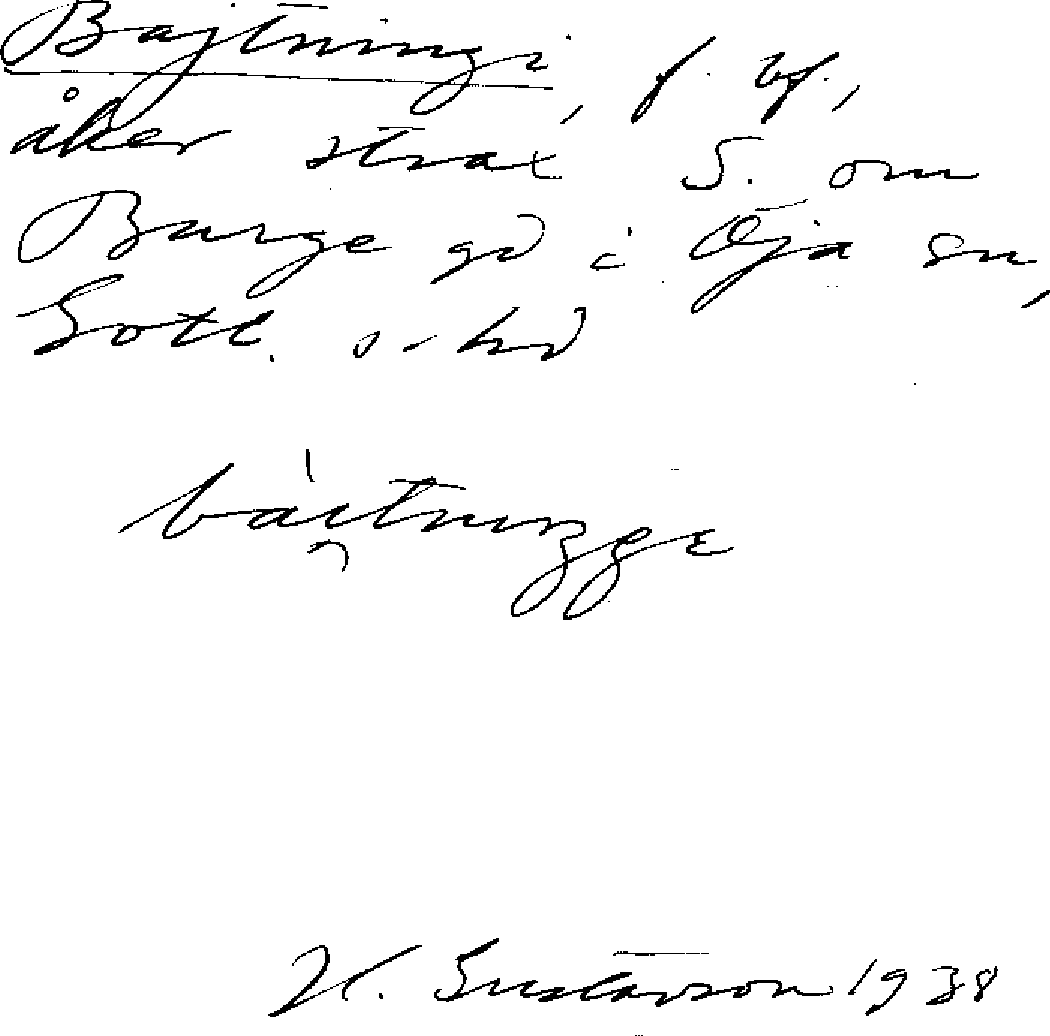 Bajtningi, f. bf,
åker strax S. om
Burge gd i Öja sn,
Gotl. s. hd
H. Gustavson 1938